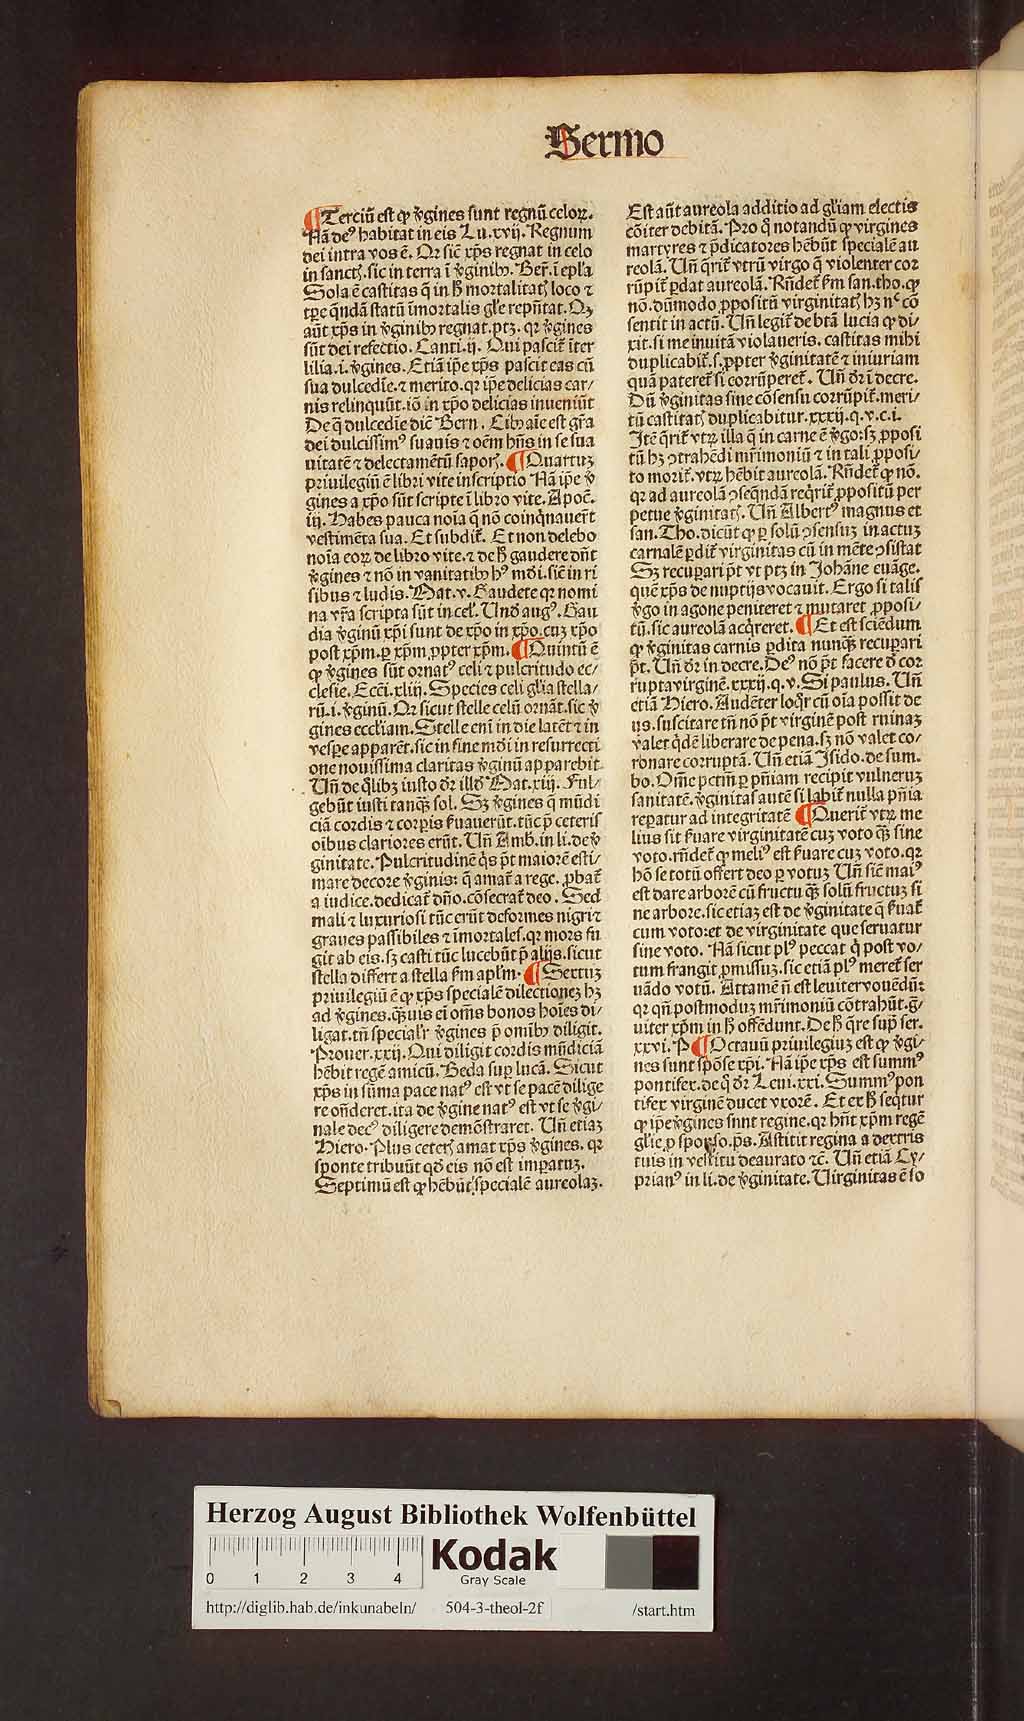 Sermo
¶ Terciū est ꝙ v̄gines sunt regnū celoꝝ.
Nā deꝰ habitat in eis Lu.xvij. Regnum
dei intra vos ē. Qꝛ sic̄ xp̄s regnat in celo
in sanct̄ꝭ. sic in terra ī v̄ginibꝰ. Ber̄. ī epl̄a
Sola ē castitas q̄ in h̄ mortalitatꝭ loco ⁊
tꝑe q̄ndā statū īmortalis gl̄ie rep̄ntat. Qꝙ
aūt xp̄s in v̄ginibꝰ regnat. ptꝫ. qꝛ v̄gines
sūt dei refectio. Canti.ij. Qui pascit̄ īter
lilia .i. v̄gines. Etiā ip̄e xp̄s pascit eas cū
sua dulcedīe. ⁊ merito. qꝛ ip̄e delicias car/
nis relinquūt. iō in xp̄o delicias inueniūt
De q̄ dulcedīe dic̄ Bern. Cibꝰ aīe est gr̄a
dei dulcissimꝰ suauis ⁊ oēm hn̄s in se sua
uitatē ⁊ delectamētū saporꝭ. ¶ Quartuꝫ
priuilegiū ē libri vite inscriptio Nā ip̄e v̄
gines a xp̄o sūt scripte ī libro vite. Apoc̄.
iij. Habes pauca noīa q̄ nō coinq̇nauer̄t
vestimēta sua. Et subdit̄. Et non delebo
noīa eoꝝ de libro vite. ⁊ de h̄ gaudere dn̄t
v̄gines ⁊ nō in vanitatibꝰ hꝰ mōi. sic̄ in ri
sibus ⁊ ludis. Mat.v. Gaudete qꝛ nomi
na vr̄a scripta sūt in cel̄. Unō augꝰ. Gau
dia v̄ginū xp̄i sunt de xp̄o in xp̄o. cuꝫ xp̄o
post xp̄m. ꝑ xp̄m. ꝓpter xp̄m. ¶ Quintū ē
ꝙ v̄gines sūt ornatꝰ celi ⁊ pulcritudo ec/
clesie. Ecci̅.xliij. Species celi gl̄ia stella/
rū .i. v̄ginū. Qꝛ sicut stelle celū ornāt. sic v̄
gines eccl̄iam. Stelle eni̅ in die latēt ⁊ in
vesꝑe apparēt. sic in fine mōi in resurrecti
one nouissima claritas v̄ginū apparebit
Un̄ de q̄libꝫ iusto dr̄ illō Mat.xiij. Ful/
gebūt iusti tanqꝫ sol. Sꝫ v̄gines q̄ mūdi
ciā cordis ⁊ corꝑis ẜuauerūt. tūc p̄ ceteris
oībus clariores erūt. Un̄ Amb̄. in li. de v̄
ginitate. Pulcritudinē q̇s p̄t maiorē esti/
mare decore v̄ginis: q̄ amat̄ a rege. ꝓbat̄
a iudice. dedicat̄ dn̄o. cōsecrat̄ deo. Sed
mali ⁊ luxuriosi tūc erūt deformes nigri ⁊
graues passibiles ⁊ īmortales. qꝛ mors fu
git ab eis. sꝫ casti tūc lucebūt p̄ alijs. sicut
stella differt a stella ẜm apl̄m. ¶ Sextuꝫ
priuilegiū ē ꝙ xp̄s specialē dilectioneꝫ hꝫ
ad v̄gines. qꝫuis ei̅ om̄s bonos hoīes di/
ligat. tn̄ specialr̄ v̄gines p̄ omībꝰ diligit.
Prouer.xxij. Qui diligit cordis mūdiciā
hēbit regē amicū. Beda suꝑ lucā. Sicut
xp̄s in sūma pace natꝰ est vt se pacē dilige
re on̄deret. ita de v̄gine natꝰ est vt se v̄gi/
nale decꝰ diligere demōstraret. Un̄ etiaꝫ
Hiero. Plus ceterꝭ amat xp̄s v̄gines. qꝛ
sponte tribuūt qd̄ eis nō est imꝑatuꝫ.
Septimū est ꝙ hēbūt specialē aureolaꝫ.
Est aūt aureola additio ad gl̄iam electis
cōiter debitā. Pro q̊ notandū ꝙ virgines
martyres ⁊ p̄dicatores hēbūt specialē au
reolā. Un̄ q̄rit̄ vtrū virgo q̄ violenter cor
rūpit̄ ꝑdat aureolā. Rn̄det̄ ẜm san. tho. ꝙ
nō. dūmodo ꝓpositū virginitatꝭ hꝫ nꝰ cō
sentit in actū. Un̄ legit̄ de btā lucia ꝙ di/
xit. si me inuitā violaueris. castitas mihi
duplicabit̄. s. ꝓpter v̄ginitatē ⁊ iniuriam
quā pateret̄ si corrūperet̄. Un̄ dr̄ ī decre.
Dū v̄ginitas sine cōsensu corrūpit̄. meri/
tū castitatꝭ duplicabitur. xxxij. q. v. c. i.
Itē q̄rit̄ vtꝝ illa q̄ in carne ē v̄go: sꝫ ꝓposi
tū hꝫ ꝯtrahēdi mr̄imoniū ⁊ in tali ꝓposi/
to morit̄. vtꝝ hēbit aureolā. Rn̄det̄ ꝙ nō.
qꝛ ad aureolā ꝯseq̄ndā req̇rit̄ ꝓpositū per
petue v̄ginitatꝭ. Un̄ Albertꝰ magnus et
san. Tho. dicūt ꝙ ꝑ solū ꝯsensuꝫ in actuꝫ
carnalē ꝑdit̄ virginitas cū in mēte ꝯsistat
Sꝫ recuꝑari p̄t vt ptꝫ in Johāne euāge.
quē xp̄s de nuptijs vocauit. Ergo si talis
v̄go in agone peniteret ⁊ mutaret ꝓposi/
tū. sic aureolā acq̇reret. ¶ Et est sciēdum
ꝙ v̄ginitas carnis ꝑdita nunqꝫ recuꝑari
p̄t. Un̄ dr̄ in decre. Deꝰ nō p̄t facere d̄ cor
rupta virginē. xxxij. q. v. Si paulus. Un̄
etiā Hiero. Audēter loq̇r cū oīa possit de
us. suscitare tn̄ nō p̄t virginē post ruinaꝫ
valet q̇dē liberare de pena. sꝫ nō valet co/
ronare corruptā. Un̄ etiā Isido. de sum.
bo. Om̄e pctm̄ ꝑ pn̄iam recipit vulneruꝫ
sanitatē. v̄ginitas autē si labit̄ nulla pn̄ia
reꝑatur ad integritatē ¶ Querit̄ vtꝝ me
lius sit ẜuare virginitatē cuꝫ voto qꝫ sine
voto. rn̄det̄ ꝙ meliꝰ est ẜuare cuꝫ voto. qꝛ
hō se totū offert deo ꝑ votuꝫ Un̄ sic̄ maiꝰ
est dare arborē cū fructu qꝫ solū fructuꝫ si
ne arbore. sic etiaꝫ est de v̄ginitate q̄ ẜuat̄
cum voto: et de virginitate que seruatur
sine voto. Nā sicut plꝰ peccat q̇ post vo/
tum frangit ꝓmissuꝫ. sic etiā plꝰ meret̄ ser
uādo votū. Attamē n̄ est leuiter vouēdū:
qꝛ qn̄ postmoduꝫ mr̄imoniū cōtrahūt. g̅/
uiter xp̄m in h̄ offēdunt. De h̄ q̄re sup̄ ser.
xxvi. P ¶ Octauū priuilegiuꝫ est ꝙ v̄gi/
nes sunt spōse xp̄i. Nā ip̄e xp̄s est summꝰ
pontifex. de q̊ dr̄ Leui.xxi. Summꝰ pon
tifex virginē ducet vxorē. Et ex h̄ seq̄tur
ꝙ ip̄e v̄gines snnt regine. qꝛ hn̄t xp̄m regē
gl̄ie ꝓ sponso. ps̄. Astitit regina a dextris
tuis in vestitu deaurato ⁊c̄. Un̄ etiā Cy/
prianꝰ in li. de v̄ginitate. Virginitas ē so
Herzog August Bibliothek Wolfenbüttel
0 1 2 3 4
Kodak
Gray Scale
http://diglib.hab.de/inkunabeln/ 504-3-theol-2f /start.htm